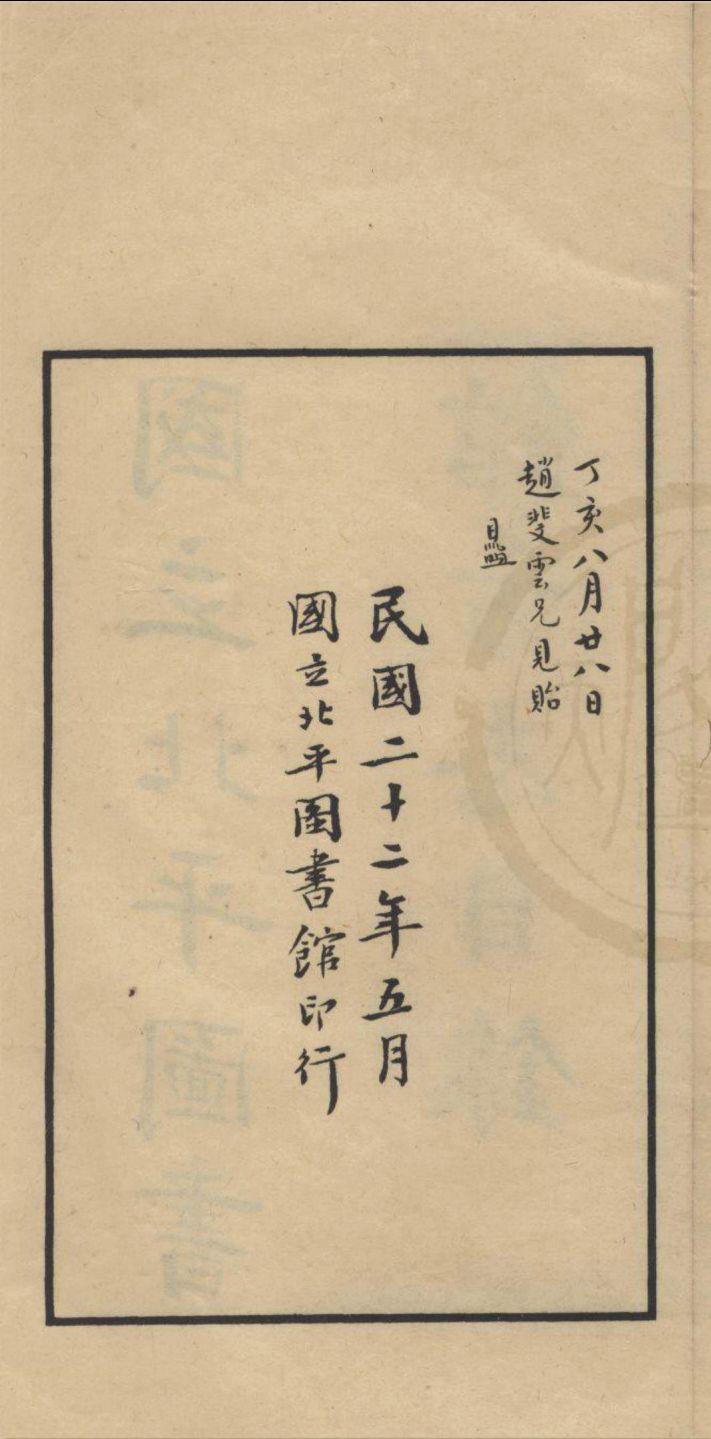 丁亥八月廿八日
趙斐雲兄見貽
民國二十二年五月
國立北平圖書館印行